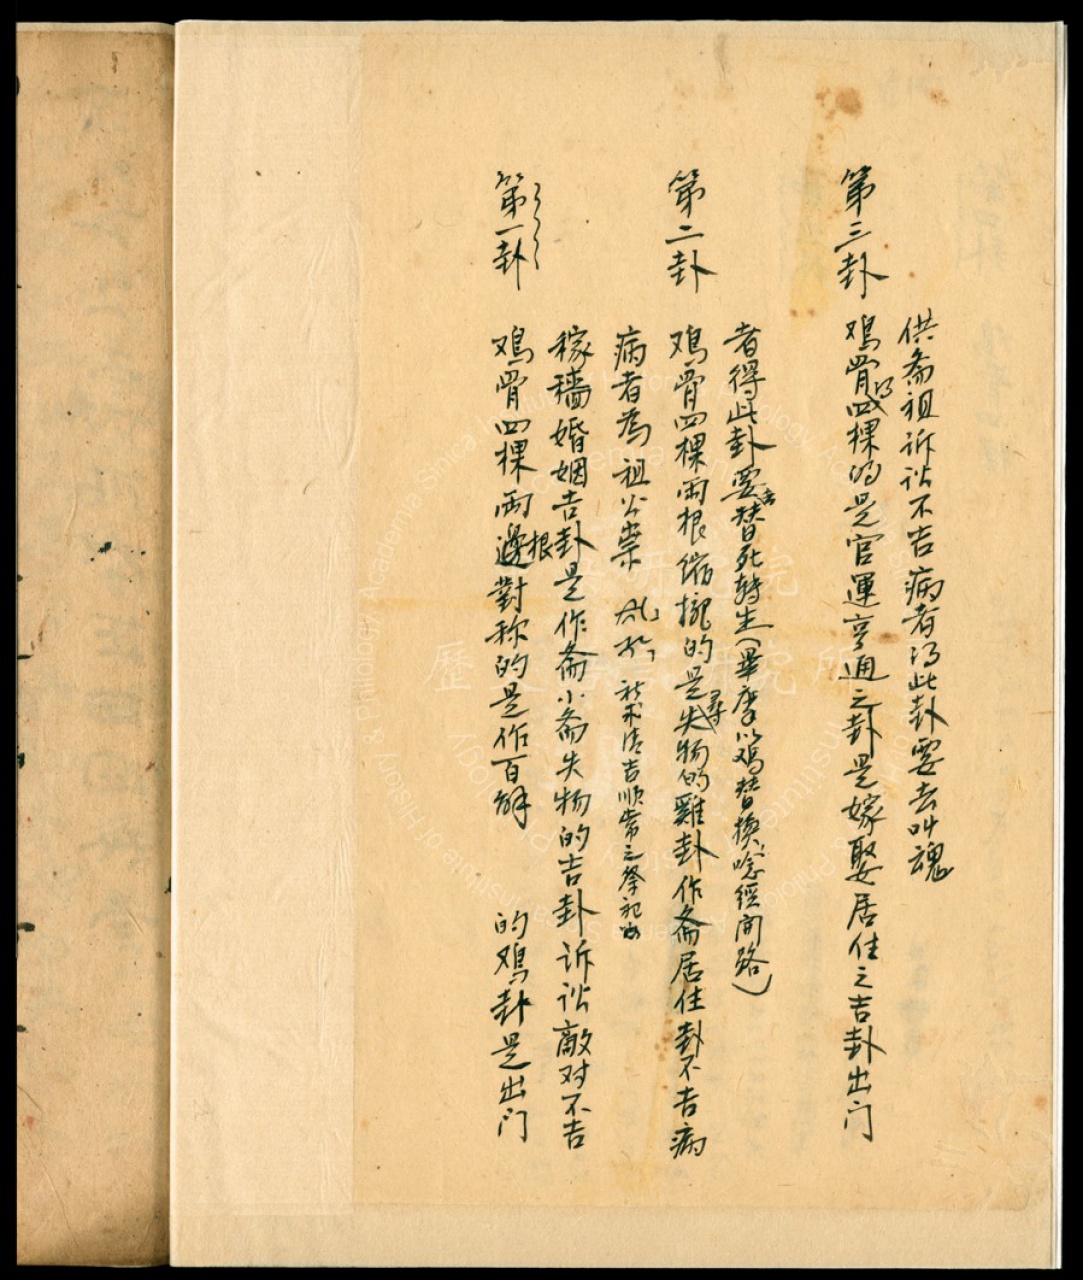 第一卦 鸡骨四棵兩根邊對称的是作百解 的鸡卦是出门
稼穡婚姻吉卦是作斋小斋失物的吉卦诉讼敵对不吉
病者為祖公祟 吉順常之祭祀
第二卦 鸡骨四棵兩根縮攏的是尋失物的雞卦作斋居住卦不吉病
者得此卦要去替死轉生(畢摩以鸡替換唸經開路)
第三卦 鸡骨四棵的是官運亨通之卦是嫁娶居住之吉卦出门
供斋祖诉讼不吉病者得此卦要去叫魂